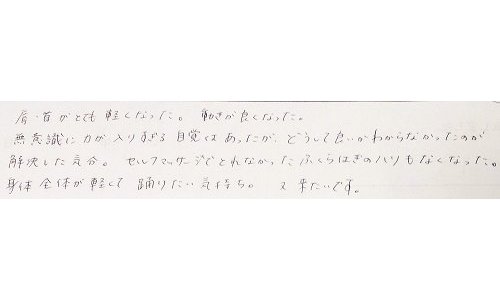 肩・首がとても軽くなった。 動きが良くなった。
無意識に力が入りすぎる自覚はあったが、どうして良いかわからなかったのが
解決した気分。セルフマッサージでとれなかったふくらはぎのハリもなくなった。
身体全体が軽くて踊りたい気持ち。 又来たいです。